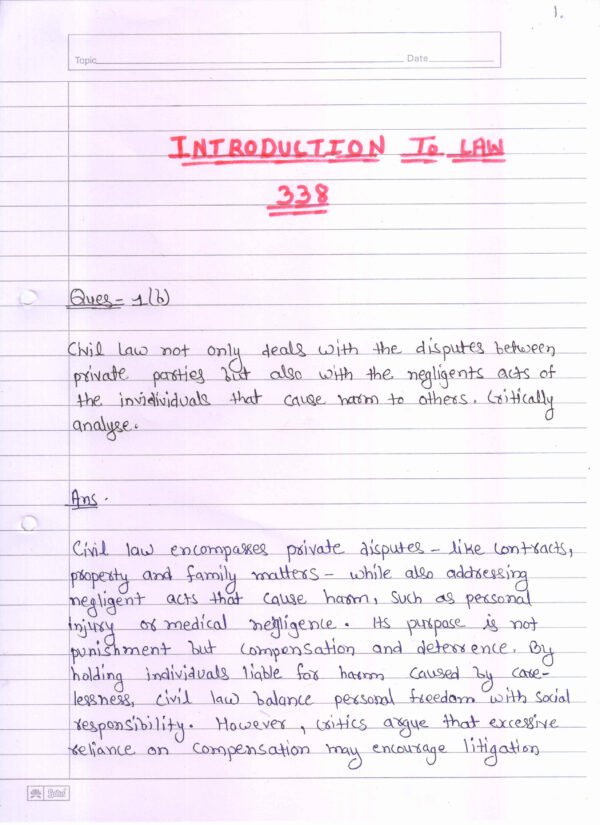 1.
Topic Date
INTRODUCTION To LAW
338
Ques - 1(b)
Civil law not only deals with the disputes between
private parties but also with the negligents acts of
the invidividuals that cause harm to others. Critically
analyse.
Ans.
Civil law encompasses private disputes – like contracts,
property and family matters – while also addressing
negligent acts that cause harm, such as personal
injury or medical negligence. Its purpose is not
punishment but compensation and deterrence. By
holding individuals liable for harm caused by care-
lessness, civil law balance personal freedom with social
responsibility. However, critics argue that excessive
reliance on compensation may encourage litigation